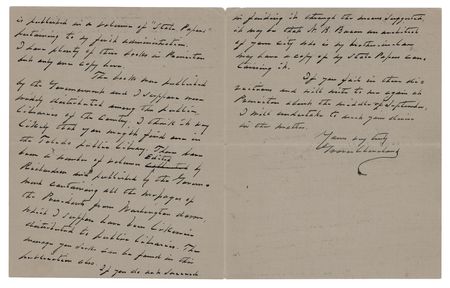 is published in a volume of "State Papers"
pertaining to my first administration.
I have plenty of these books in Princeton
but only one copy here.
The books were published
by the Government and I suppose were
widely distributed among the public
Libraries of the Country. I think it very
likely that you might find one in
the Toledo public library. There have
been a number of volumes Edited by
Richardson and published by the Govern-
ment containing all the messages of
the Presidents from Washington down,
which I suppose have been likewise
distributed to public libraries. The
message you seek can be found in this
publication also. If you do not succeed
in finding it through the means suggested,
it may be that Bacon an architect
of your City who is my brother-in-law
may have a copy of my State Papers con-
taining it.
If you fail in these di-
rections and will write to me again at
Princeton about the middle of September,
I will undertake to you
in the matter.
Yours very truly
Grover Cleveland